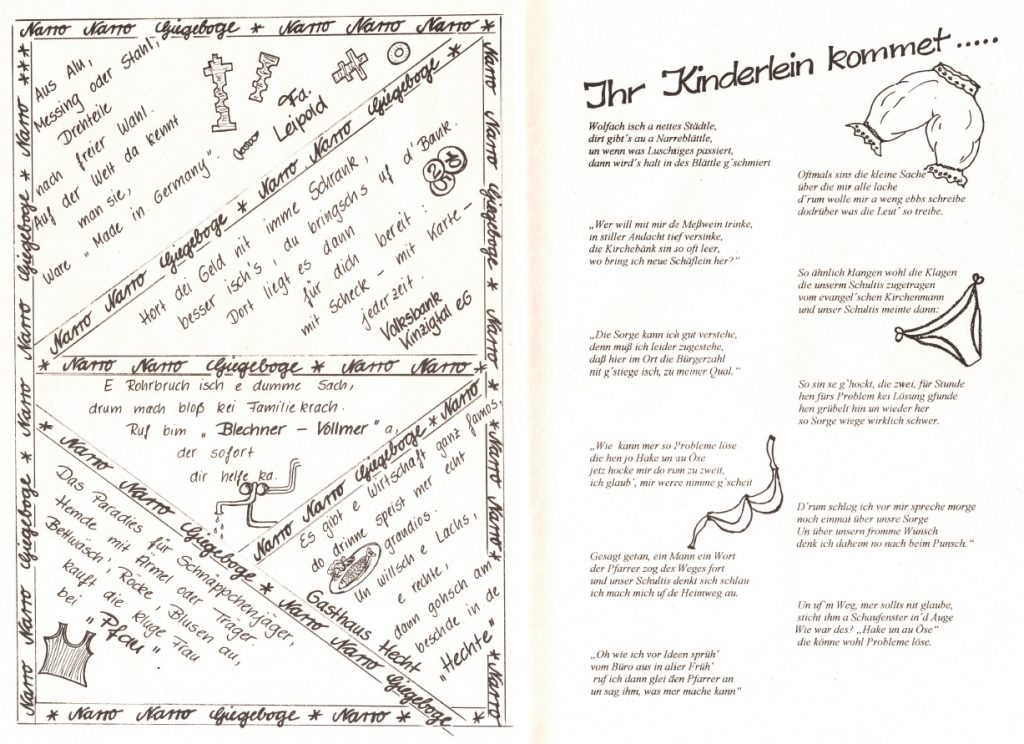 Narro Narro Giegeboge * Narro Narro Giegeboge * Narro Narro *
Narro Giegeboge * Narro Narro Giegeboge * Narro Narro Giegeboge * Narro ***
Aus Alu,
Messing oder Stahl,
Drehteile
nach freier Wahl.
Auf der Welt da kennt
man sie,
Ware "Made in Germany".
Fa.
Leipold
Narro Narro Giegeboge * Narro Narro Giegeboge *
Hort dei Geld nit imme Schrank,
besser isch's, du bringsch's uf d'Bank.
Dort liegt es dann
für dich bereit:
mit Scheck - mit Karte -
jederzeit.
Volksbank
Kinzigtal eG
Narro * Narro Giegeboge * Narro Narro Giegeboge * Narro Narro Giegeboge * Narro
* Narro Narro Giegeboge * Narro Narro *
E Rohrbruch isch e dumme Sach,
drum mach bloß kei Familiekrach.
Ruf bim "Blechner - Vollmer" a,
der sofort
dir helfe ka.
* Narro Narro Giegeboge * Narro Narro Giegeboge *
Narro Giegeboge * Narro
Das Paradies für Schnäppchenjäger,
Hemde mit Ärmel oder Träger,
Bettwäsch, Röcke, Blusen au,
kauft die kluge Frau
bei "Pfau".
Es gibt e Wirtschaft ganz famos,
do drinne speist mer echt
grandios.
Un willsch e Lachs,
e rechte,
dann gohsch am
beschde in de
"Hechte"
Gasthaus
Hecht
* Narro Narro Giegeboge * Narro Narro Giegeboge * Narro *
Ihr Kinderlein kommet .....
Wolfach isch a nettes Städtle,
dirt gibt's au a Narreblättle,
un wenn was Luschtiges passiert,
dann wird's halt in des Blättle g'schmiert
Oftmals sins die kleine Sache
über die mir alle lache
d'rum wolle mir a weng ebbs schreibe
dodrüber was die Leut' so treibe.
„Wer will mit mir de Meßwein trinke,
in stiller Andacht tief versinke,
die Kirchebänk sin so oft leer,
wo bring ich neue Schäflein her?“
So ähnlich klangen wohl die Klagen
die unserm Schultis zugetragen
vom evangel'schen Kirchenmann
und unser Schultis meinte dann:
„Die Sorge kann ich gut verstehe,
denn muß ich leider zugestehe,
daß hier im Ort die Bürgerzahl
nit g'stiege isch, zu meiner Qual.“
So sin se g'hockt, die zwei, für Stunde
hen fürs Problem kei Lösung gfunde
hen grübelt hin un wieder her
so Sorge wiege wirklich schwer.
„Wie kann mer so Probleme löse
die hen jo Hake un au Öse
jetz hocke mir do rum zu zweit,
ich glaub', mir werre nimme g'scheit
D'rum schlag ich vor mir spreche morge
noch einmal über unsre Sorge
Un über unsern fromme Wunsch
denk ich daheim no nach beim Punsch.“
Gesagt getan, ein Mann ein Wort
der Pfarrer zog des Weges fort
und unser Schultis denkt sich schlau
ich mach mich uf de Heimweg au.
Un uf'm Weg, mer sollts nit glaube,
sticht ihm a Schaufenster in'd Auge
Wie war des? „Hake un au Öse“
die könne wohl Probleme löse.
„Oh wie ich vor Ideen sprüh'
vom Büro aus in aller Früh'
ruf ich dann glei den Pfarrer an
un sag ihm, was mer mache kann“